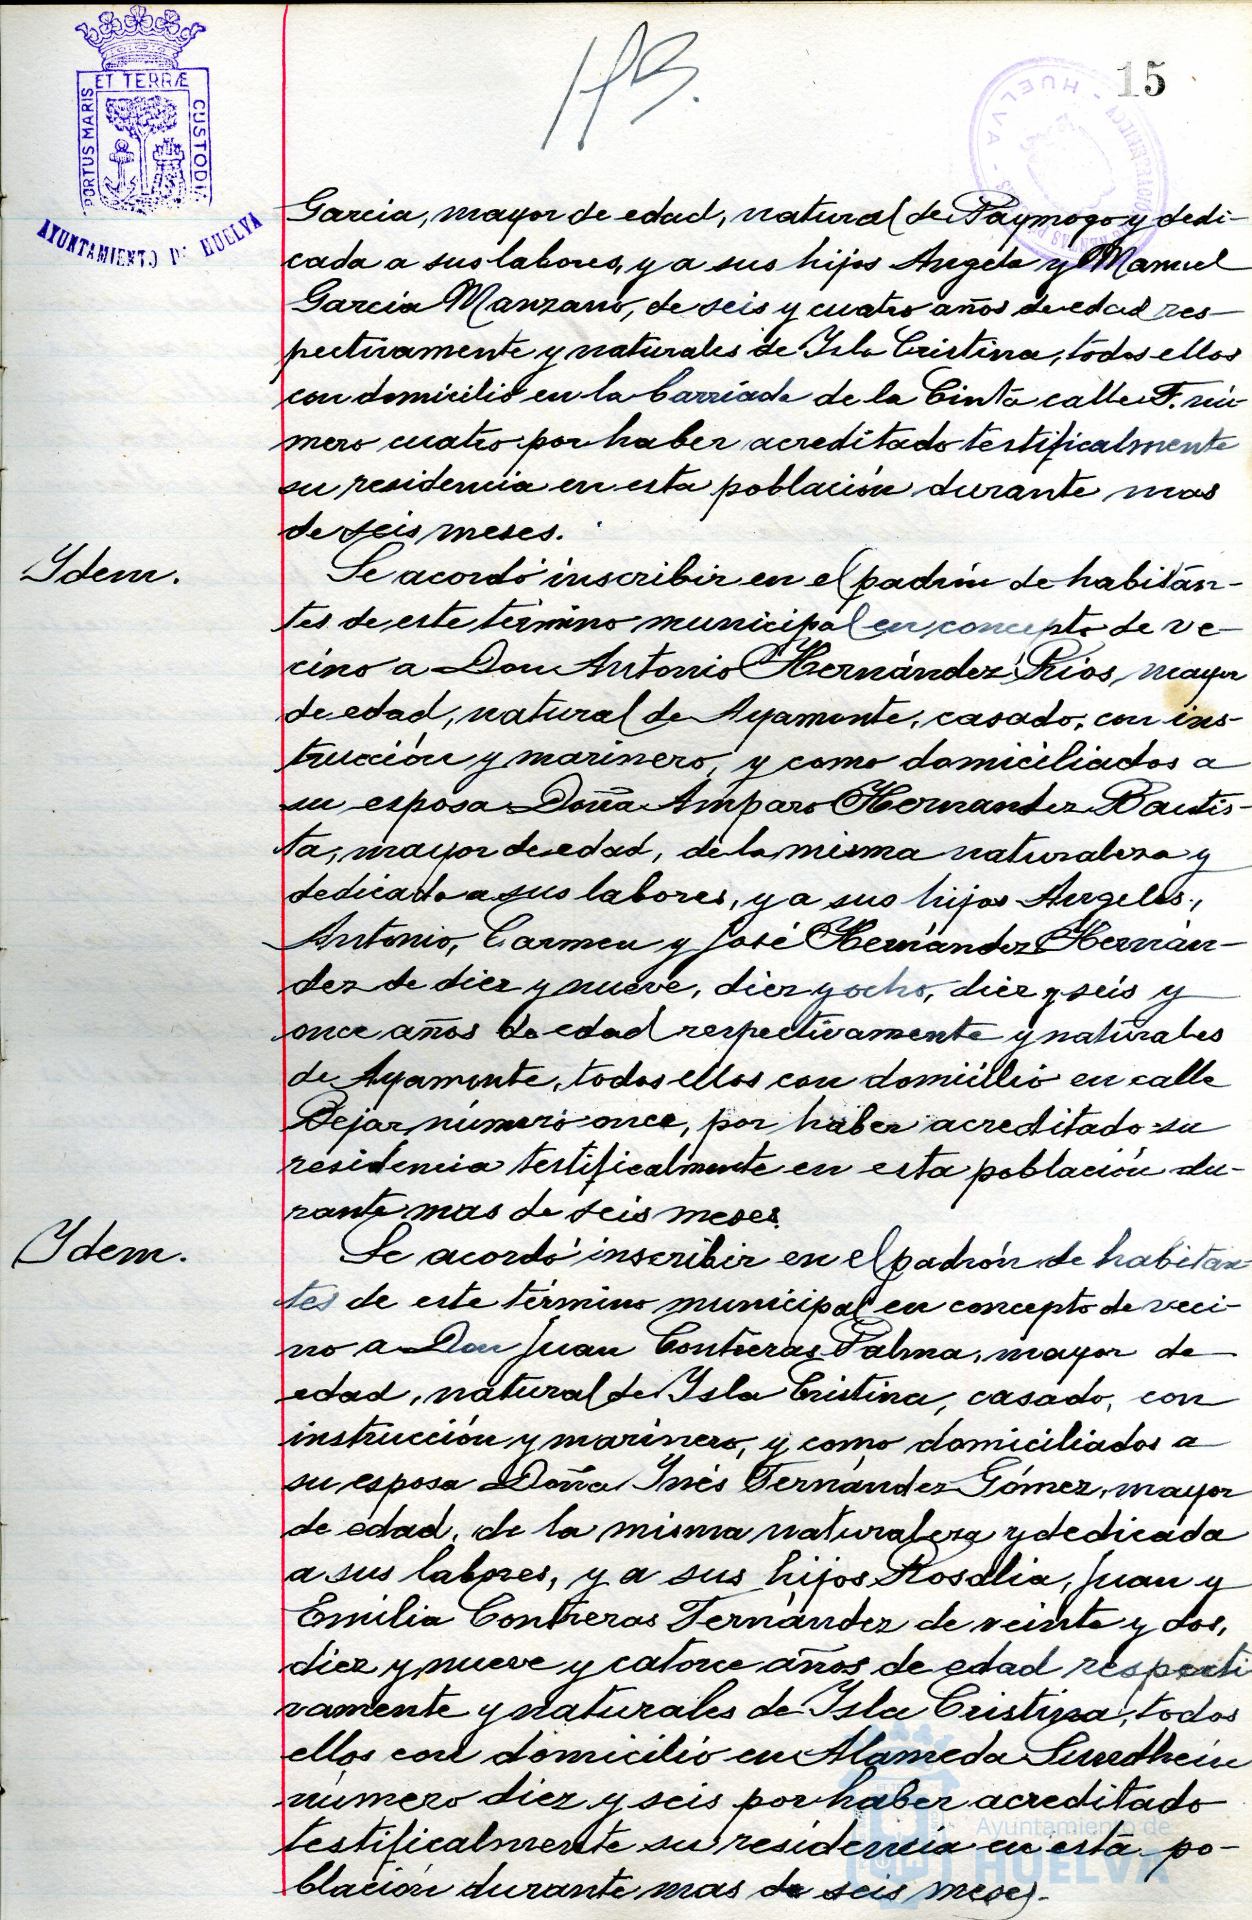 PORTUS MARIS ET TERRÆ CUSTODIA
AYUNTAMIENTO DE HUELVA
15
HUELVA
Garcia, mayor de edad, natural de Paymogo y dedi-
cada a sus labores, y a sus hijos Angela y Manuel
Garcia Manzano, de seis y cuatro años de edad res-
pectivamente y naturales de Isla Cristina, todos ellos
con domicilio en la barriada de la Cinta calle F. nú-
mero cuatro por haber acreditado testificalmente
su residencia en esta población durante mas
de seis meses.
Ydem.
Se acordó inscribir en el padrón de habitan-
tes de este término municipal en concepto de ve-
cino a Don Antonio Hernández Rios, mayor
de edad, natural de Ayamonte, casado, con ins-
trucción y marinero, y como domiciliados a
su esposa Doña Amparo Hernandez Bautis-
ta, mayor de edad, de la misma naturaleza y
dedicada a sus labores, y a sus hijos Angeles,
Antonio, Carmen y José Hernández Hernán-
dez de diez y nueve, diez y ocho, diez y seis y
once años de edad respectivamente y naturales
de Ayamonte, todos ellos con domicilio en calle
Bejar número once, por haber acreditado su
residencia testificalmente en esta población du-
rante mas de seis meses.
Ydem.
Se acordó inscribir en el padrón de habitan-
tes de este término municipal en concepto de veci-
no a Don Juan Contreras Palma, mayor de
edad, natural de Isla Cristina, casado, con
instrucción y marinero, y como domiciliados a
su esposa Doña Inés Fernández Gómez, mayor
de edad, de la misma naturaleza y dedicada
a sus labores, y a sus hijos Rosalia, Juan y
Emilia Contreras Fernández de veinte y dos,
diez y nueve y catorce años de edad respecti
vamente y naturales de Isla Cristina, todos
ellos con domicilio en Alameda Sundheim
número diez y seis por haber acreditado
testificalmente su residencia en esta po-
blación durante mas de seis meses.
Ayuntamiento de
HUELVA